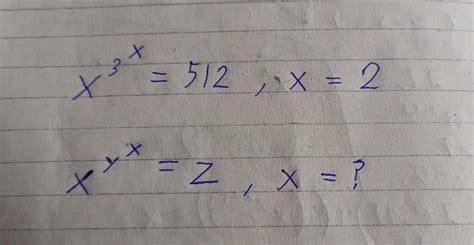 x^3^x = 512 , x = 2
x^y^x = z , x = ?